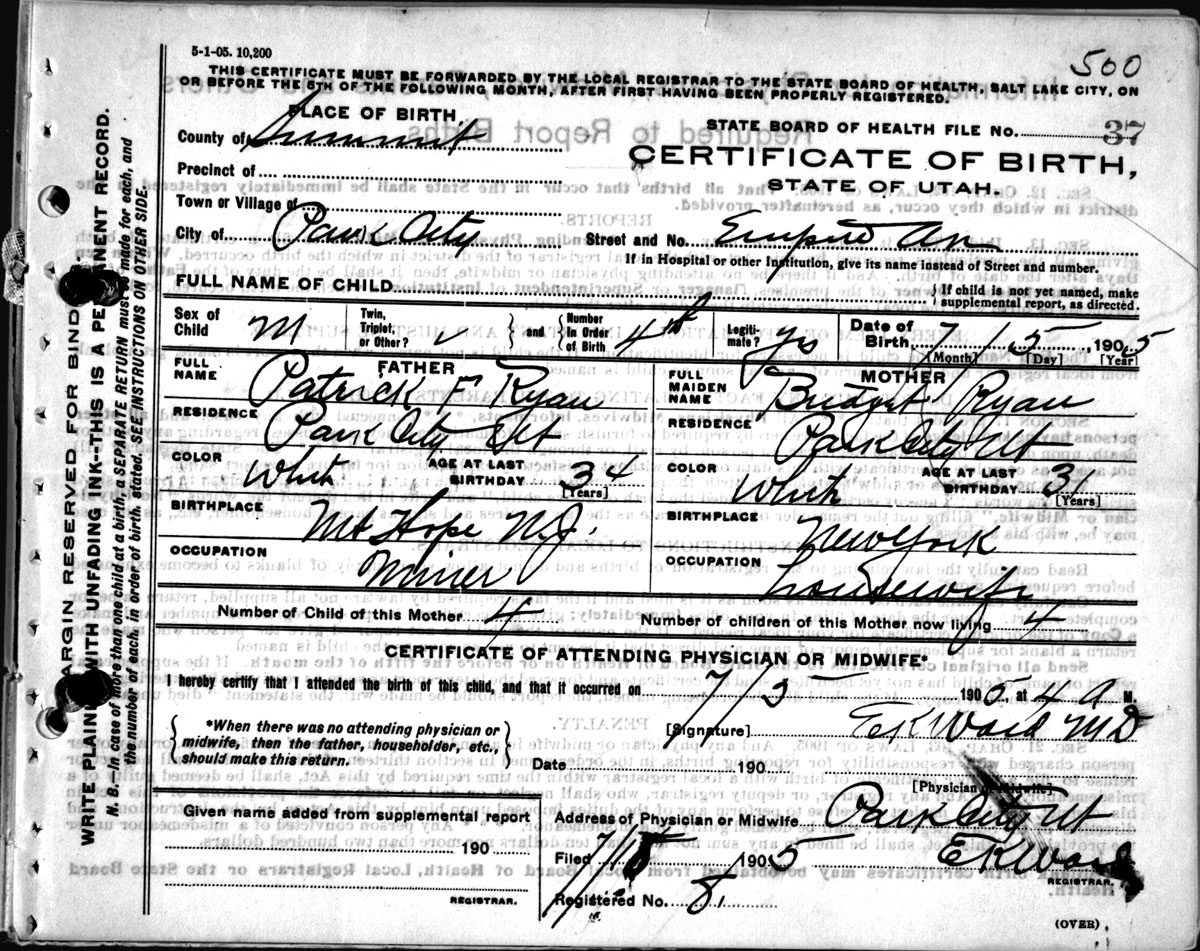 5-1-05. 10,200
500
THIS CERTIFICATE MUST BE FORWARDED BY THE LOCAL REGISTRAR TO THE STATE BOARD OF HEALTH, SALT LAKE CITY, ON
OR BEFORE THE 5TH OF THE FOLLOWING MONTH, AFTER FIRST HAVING BEEN PROPERLY REGISTERED.
PLACE OF BIRTH,
County of Summit
Precinct of
Town or Village of
City of Park City
STATE BOARD OF HEALTH FILE No. 37
CERTIFICATE OF BIRTH,
STATE OF UTAH.
Street and No. Empire Av
If in Hospital or other Institution, give its name instead of Street and number.
FULL NAME OF CHILD
If child is not yet named, make
supplemental report, as directed.
Sex of Child M
Twin, Triplet, or Other?
and Number In Order of Birth 4th
Legitimate? yes
Date of Birth 7 / 5 , 1905
[Month] [Day] [Year]
FATHER
FULL NAME Patrick F Ryan
RESIDENCE Park City Ut
COLOR Whit AGE AT LAST BIRTHDAY 34
[Years]
BIRTHPLACE Mt Hope N.J.
OCCUPATION Miner
MOTHER
FULL MAIDEN NAME Bridget Ryan
RESIDENCE Park City Ut
COLOR Whit AGE AT LAST BIRTHDAY 31
[Years]
BIRTHPLACE New York
OCCUPATION housewife
Number of Child of this Mother 4 Number of children of this Mother now living 4
CERTIFICATE OF ATTENDING PHYSICIAN OR MIDWIFE*
I hereby certify that I attended the birth of this child, and that it occurred on 7/5 1905 at 4 a M.
*When there was no attending physician or
midwife, then the father, householder, etc.,
should make this return.
[Signature] E K Ward MD
Date 190
[Physician or Midwife]
Given name added from supplemental report
190
REGISTRAR.
Address of Physician or Midwife Park City Ut
Filed 1905 E K Ward
REGISTRAR.
Registered No. 8.
(OVER)
MARGIN RESERVED FOR BINDING
WRITE PLAINLY WITH UNFADING INK--THIS IS A PERMANENT RECORD.
N. B.--In case of more than one child at a birth, a SEPARATE RETURN must be made for each, and
the number of each, in order of birth, stated. SEE INSTRUCTIONS ON OTHER SIDE.